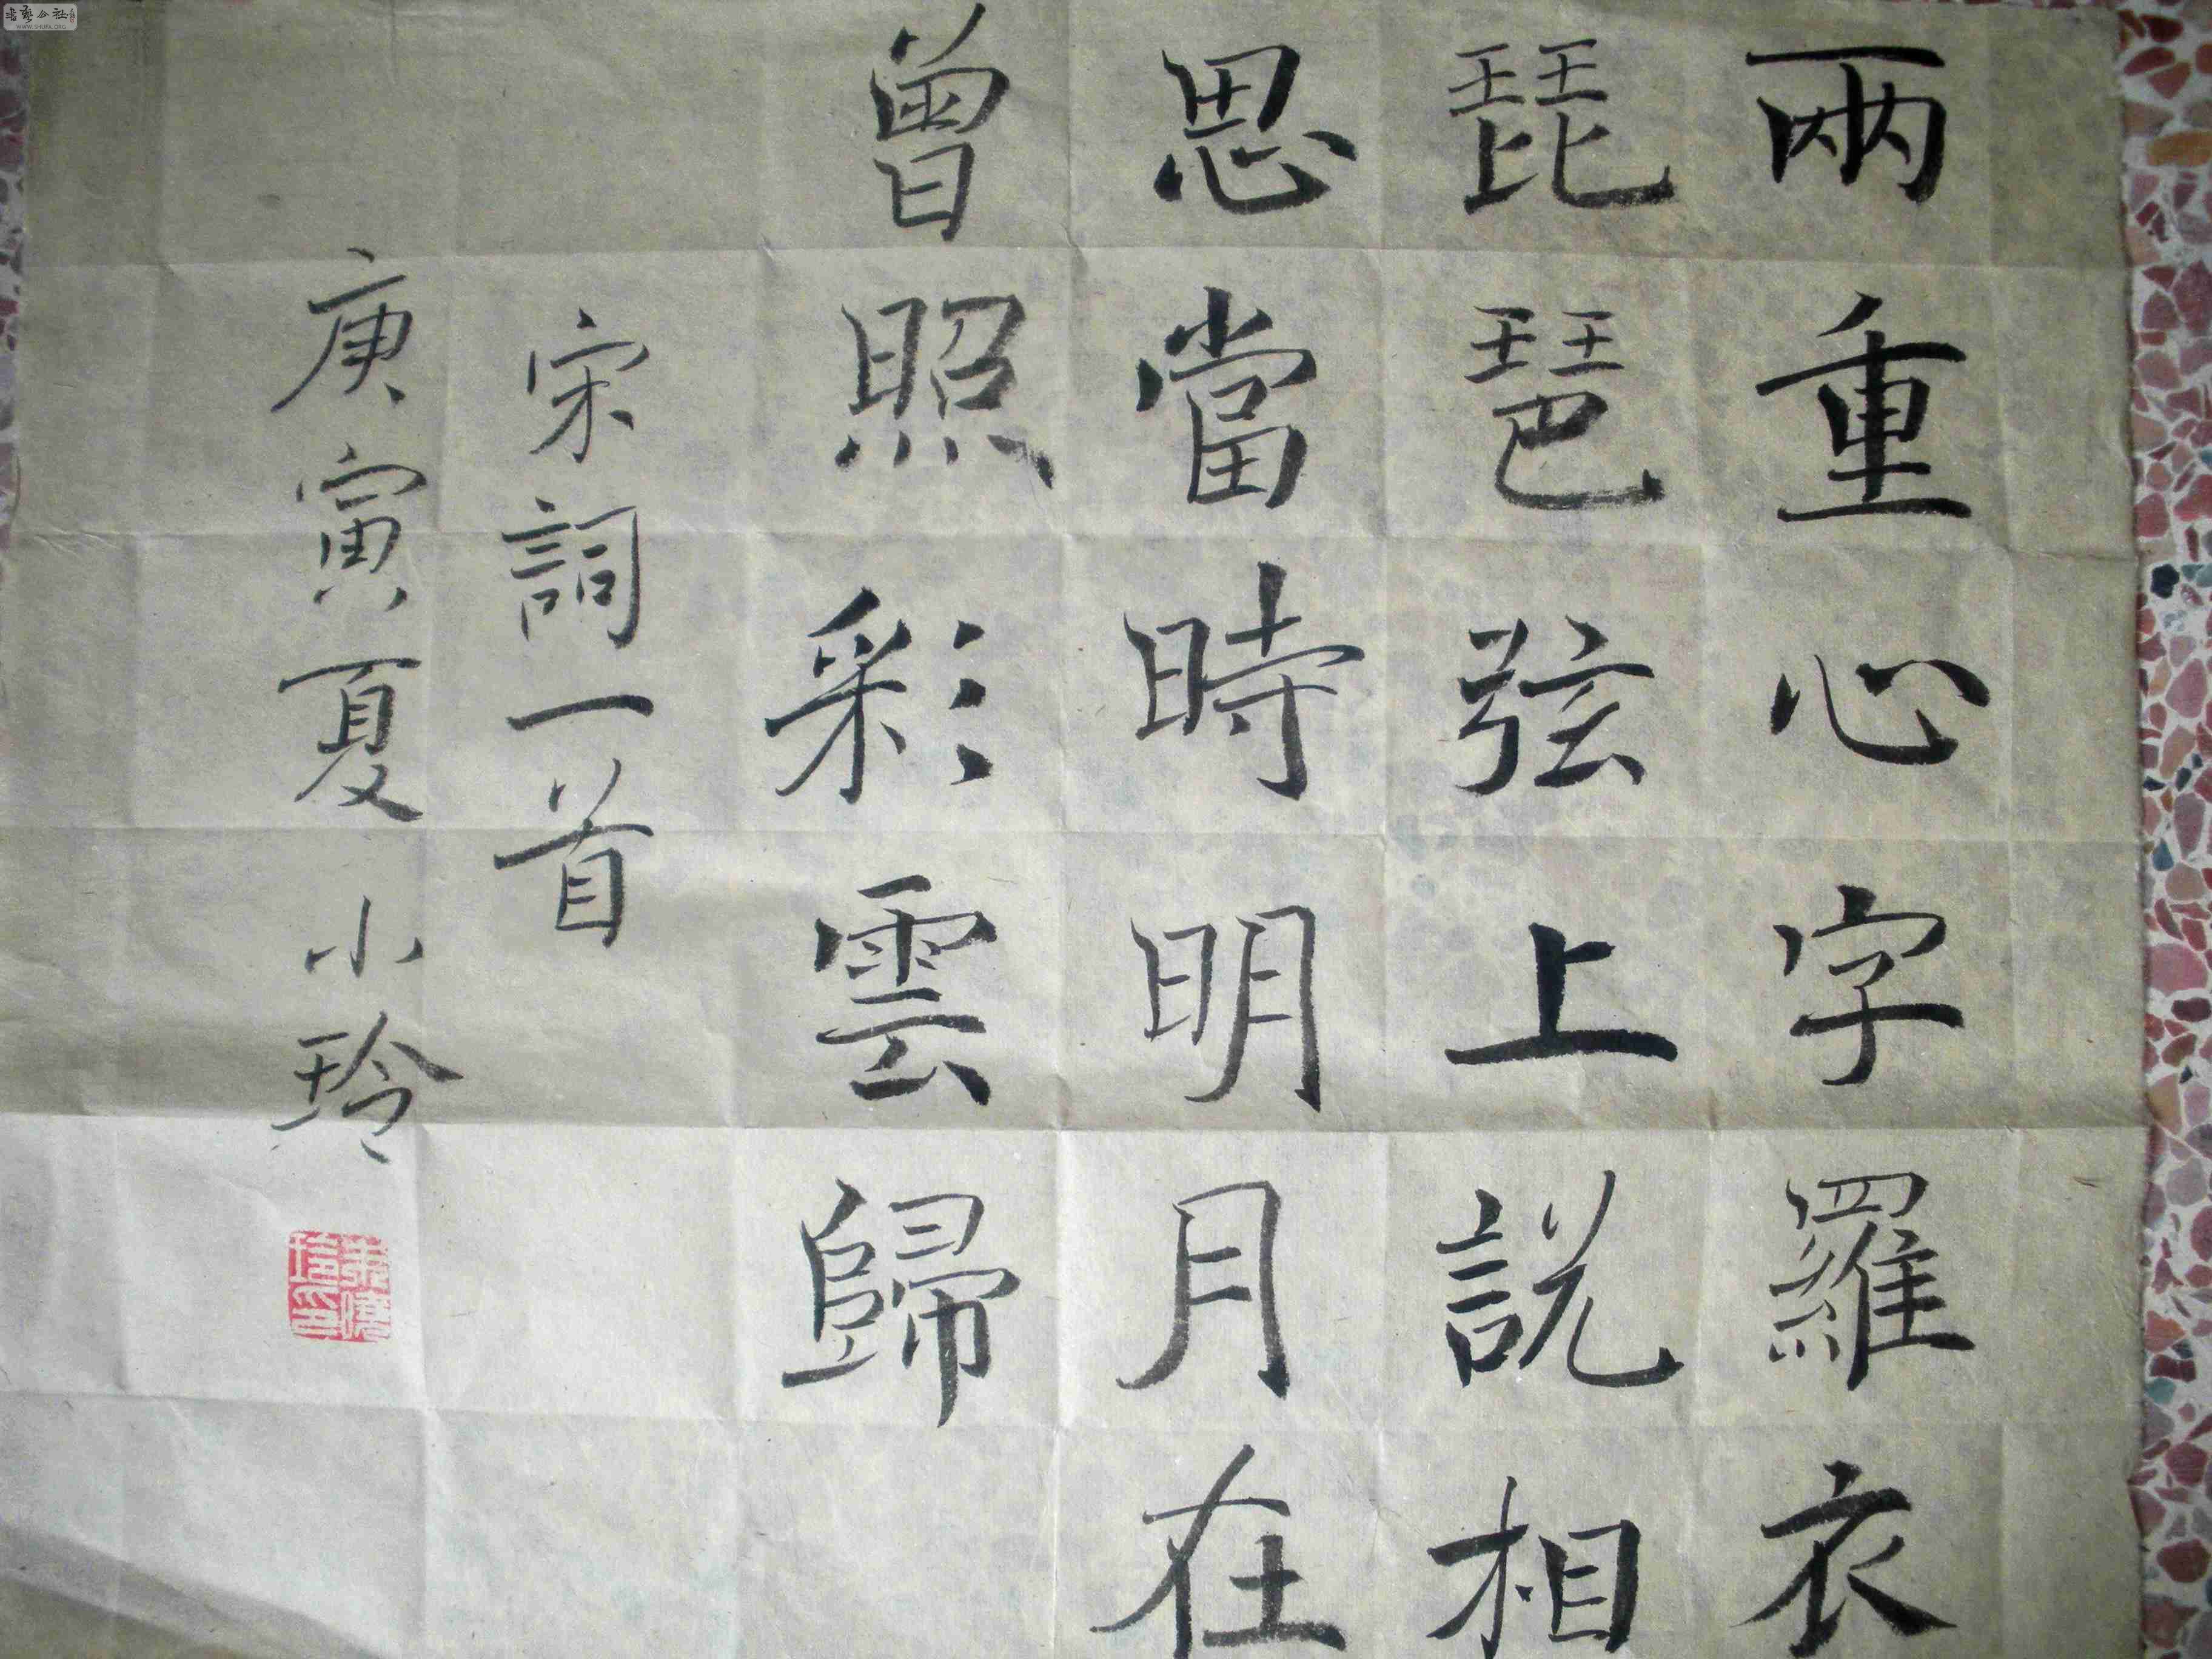 兩重心字羅衣
琵琶弦上説相
思當時明月在
曾照彩雲歸
宋詞一首
庚寅夏小玲
WWW.SHUFA.ORG